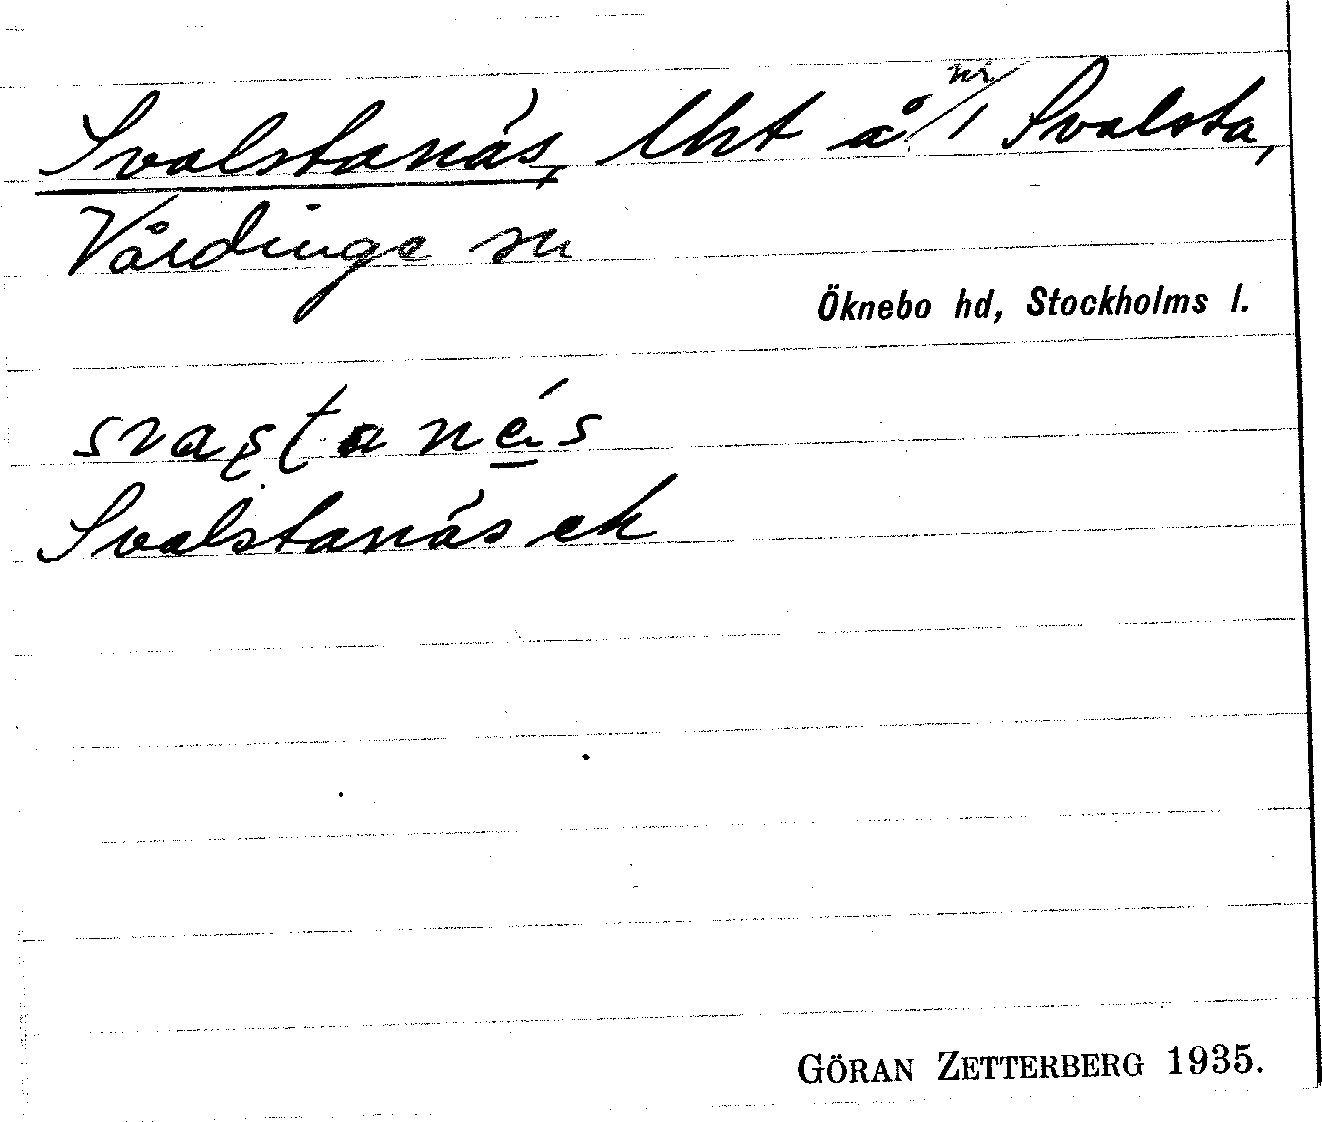 Svalstanäs, lht å nr 1 Svalsta,
Vårdinge sn
Öknebo hd, Stockholms l.
Svalstanäs ek
GÖRAN ZETTERBERG 1935.